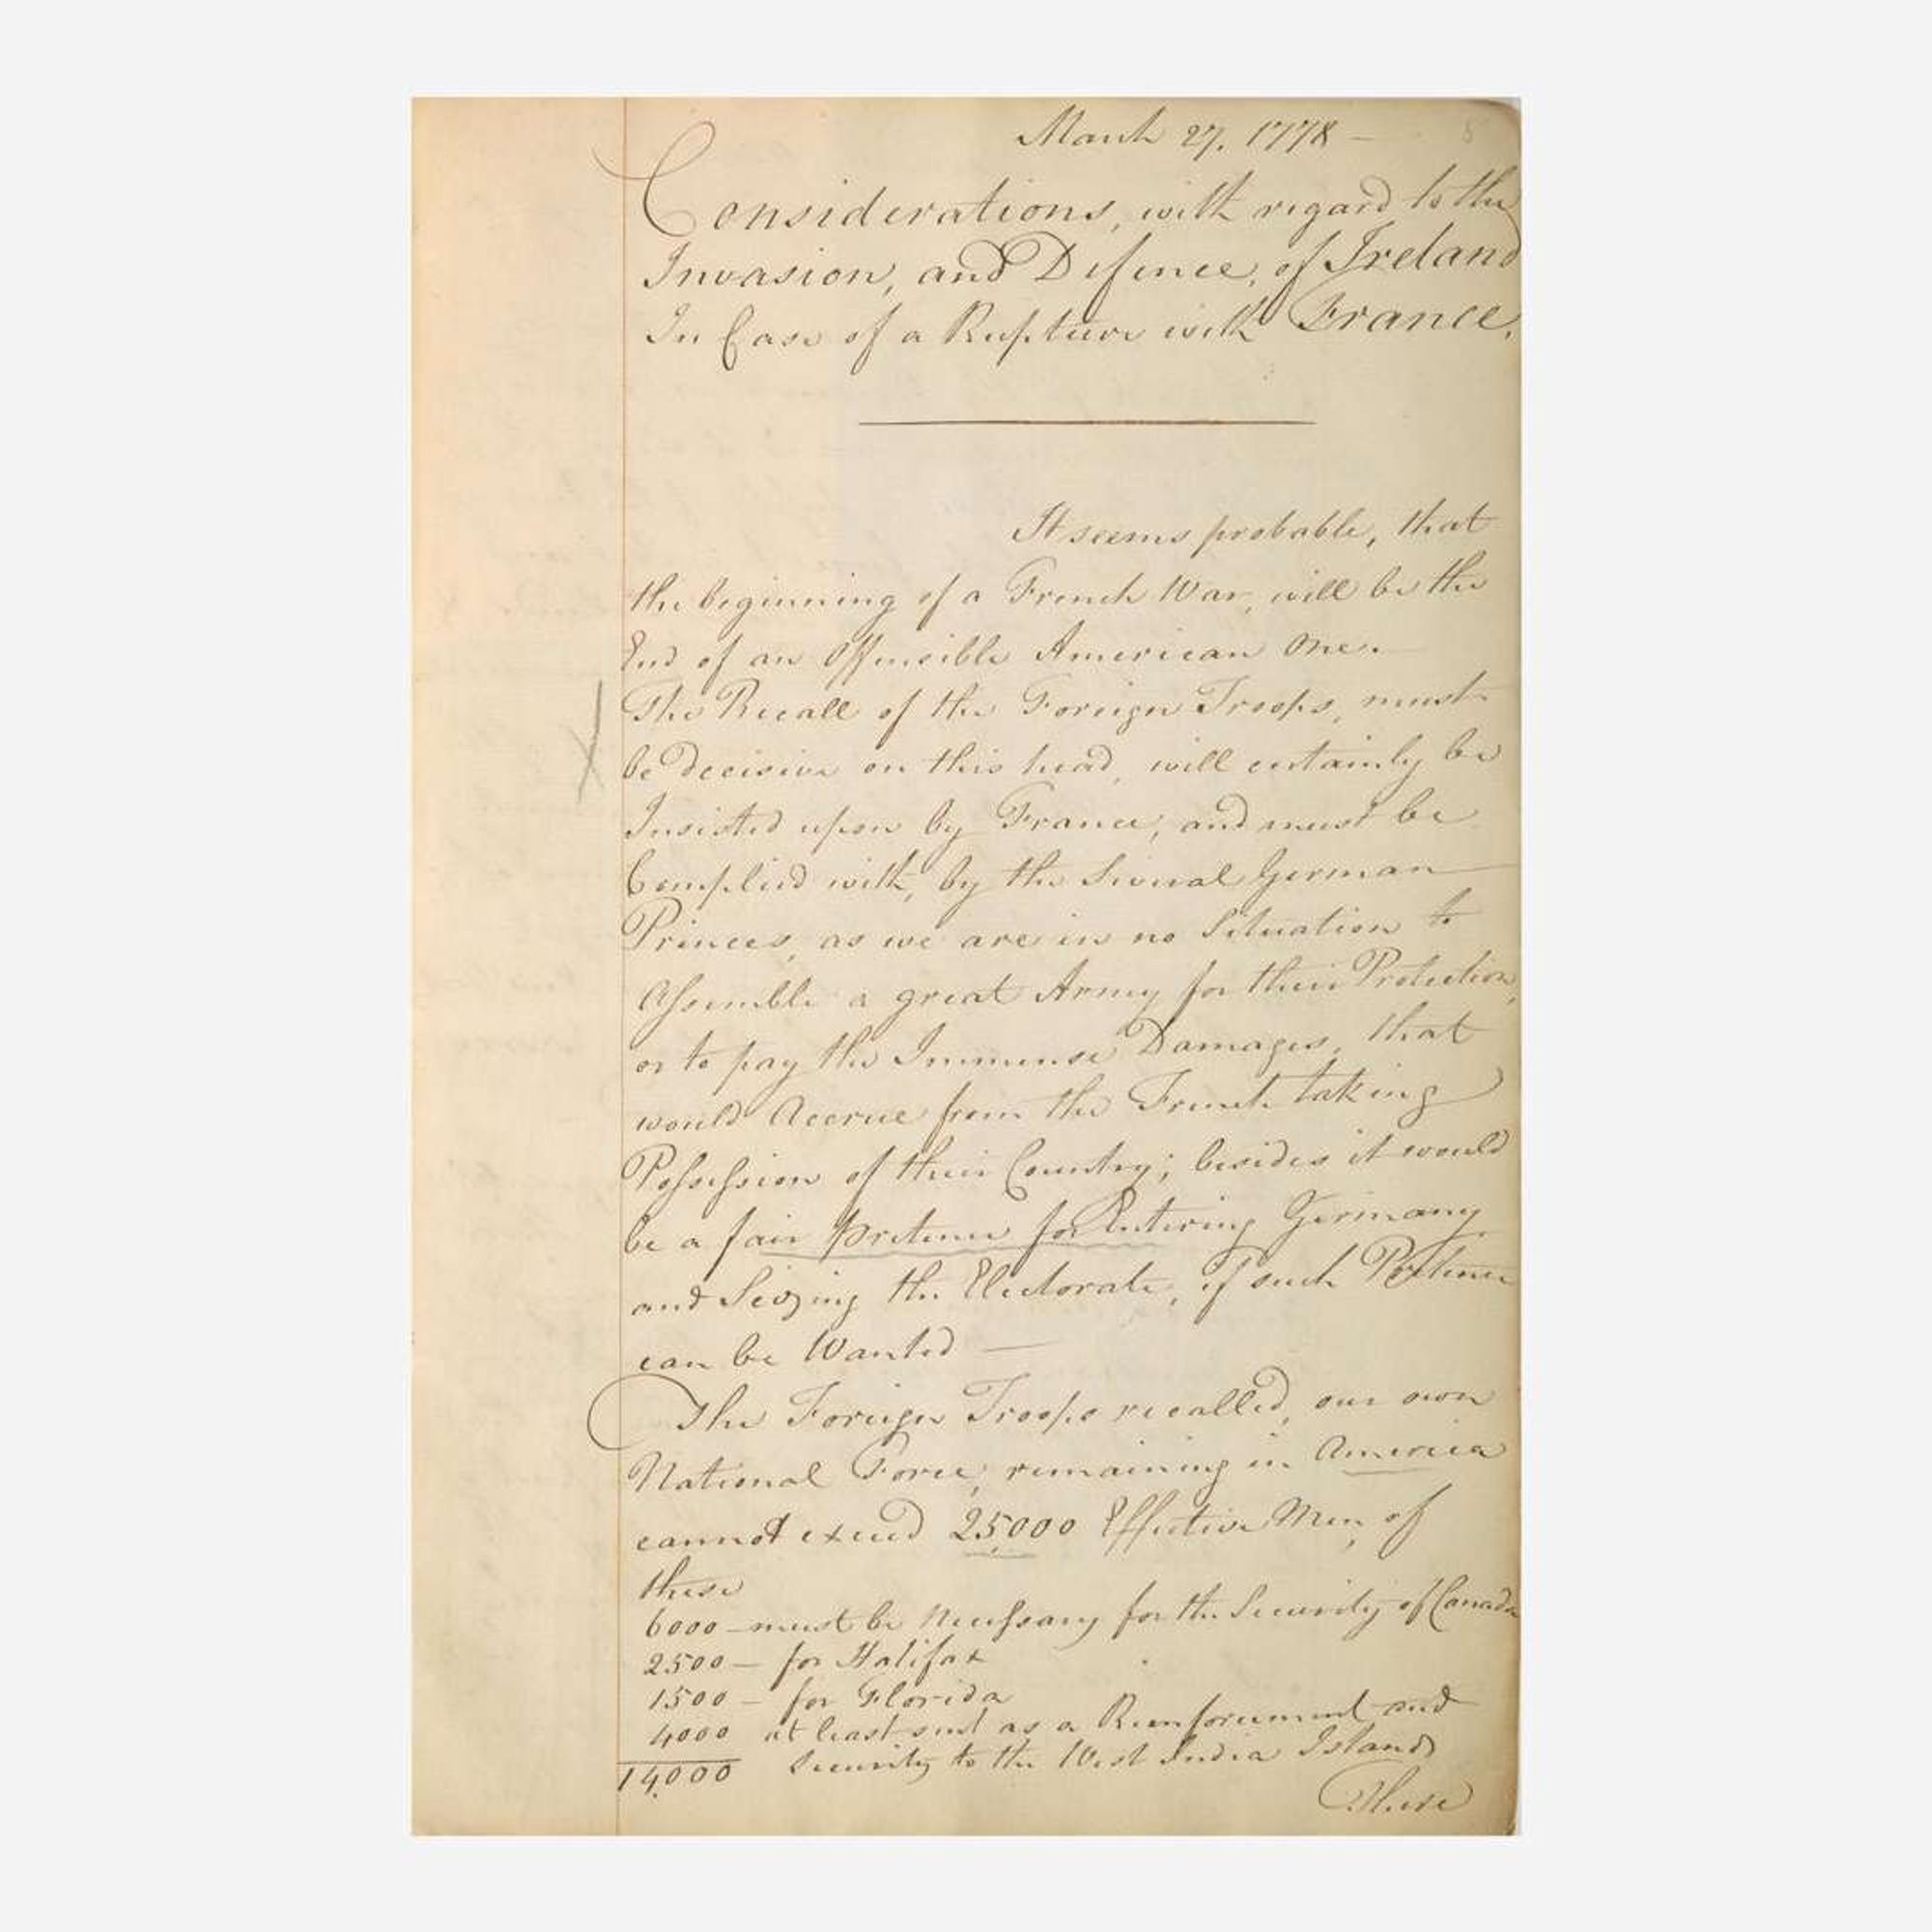 March 27. 1778 —
5
Considerations, with regard to the
Invasion, and Defence, of Ireland
In Case of a Rupture with France.
It seems probable, that
the beginning of a French War, will be the
End of an Offensible American One. —
The Recall of the Foreign Troops, must
be decisive on this head, will certainly be
Insisted upon by France, and must be
Complied with, by the Several German
Princes, as we are in no Situation to
Assemble a great Army for their Protection,
or to pay the Immense Damages, that
would Accrue from the French taking
Possession of their Country; besides it would
be a fair pretence for Entering Germany
and Seizing the Electorate, if such Pretence
can be Wanted —
The Foreign Troops recalled, our own
National Force, remaining in America
cannot exceed 25,000 Effective Men, of
these
6000 – must be Necessary for the Security of Canada
2500 – for Halifax
1500 – for Florida
4000 at least sent as a Reinforcement and
14,000 Security to the West India Islands
These